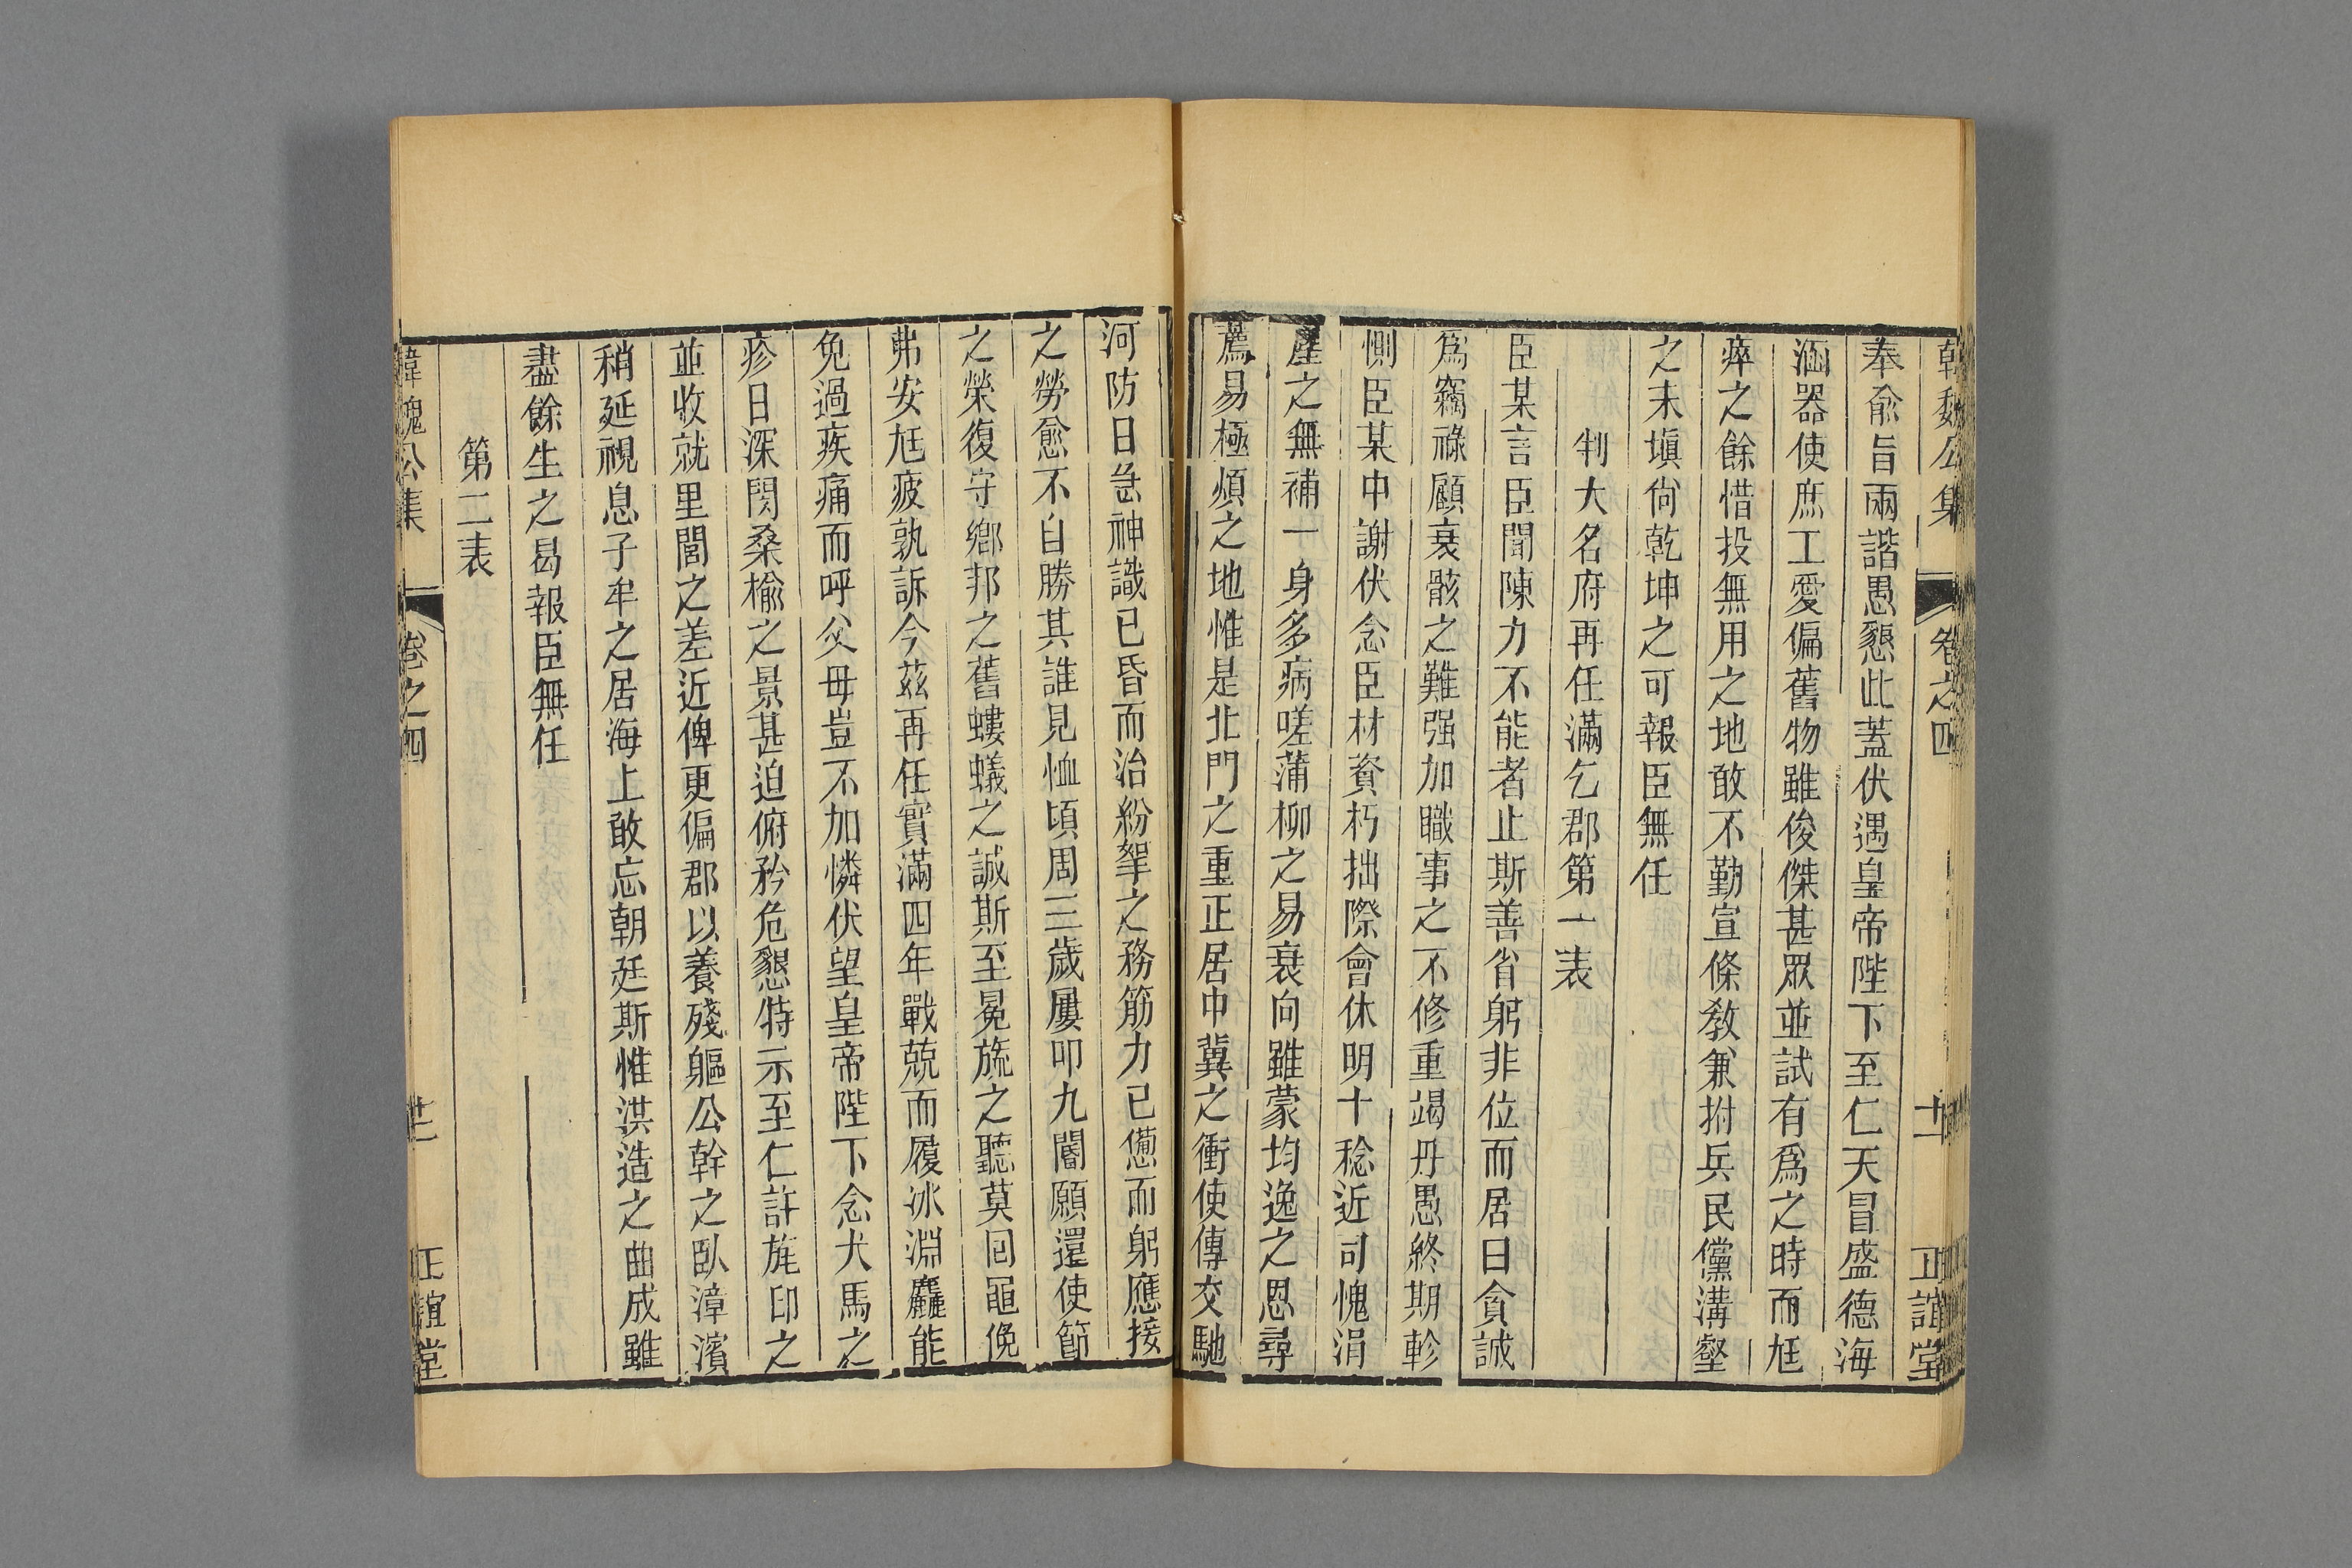 韓魏公集 卷之四 十一 正誼堂
奉兪旨兩諧愚懇此蓋伏遇皇帝陛下至仁天冒盛德海
涵器使庶工愛偏舊物雖俊傑甚眾並試有爲之時而尫
瘁之餘惜投無用之地敢不勤宣條敎兼拊兵民儻溝壑
之未塡尙乾坤之可報臣無任
判大名府再任滿乞郡第一表
臣某言臣聞陳力不能者止斯善省躬非位而居曰貪誠
爲竊祿顧衰骸之難强加職事之不修重竭丹愚終期軫
惻臣某中謝伏念臣材資朽拙際會休明十稔近司愧涓
塵之無補一身多病嗟蒲柳之易衰向雖蒙均逸之恩尋
薦易極煩之地惟是北門之重正居中冀之衝使傳交馳
河防日急神識已昏而治紛挐之務筋力已憊而躬應接
之勞愈不自勝其誰見恤頃周三歲屢叩九閽願還使節
之榮復守鄉邦之舊螻蟻之誠斯至冕旒之聽莫回黽俛
弗安尫疲孰訴今茲再任實滿四年戰兢而履冰淵麤能
免過疾痛而呼父母豈不加憐伏望皇帝陛下念犬馬之
疹日深閔桑榆之景甚迫俯矜危懇特示至仁許旄印之
並收就里閭之差近俾更偏郡以養殘軀公幹之臥漳濱
稍延視息子牟之居海上敢忘朝廷斯惟洪造之曲成雖
盡餘生之曷報臣無任
第二表
韓魏公集 卷之四 正誼堂